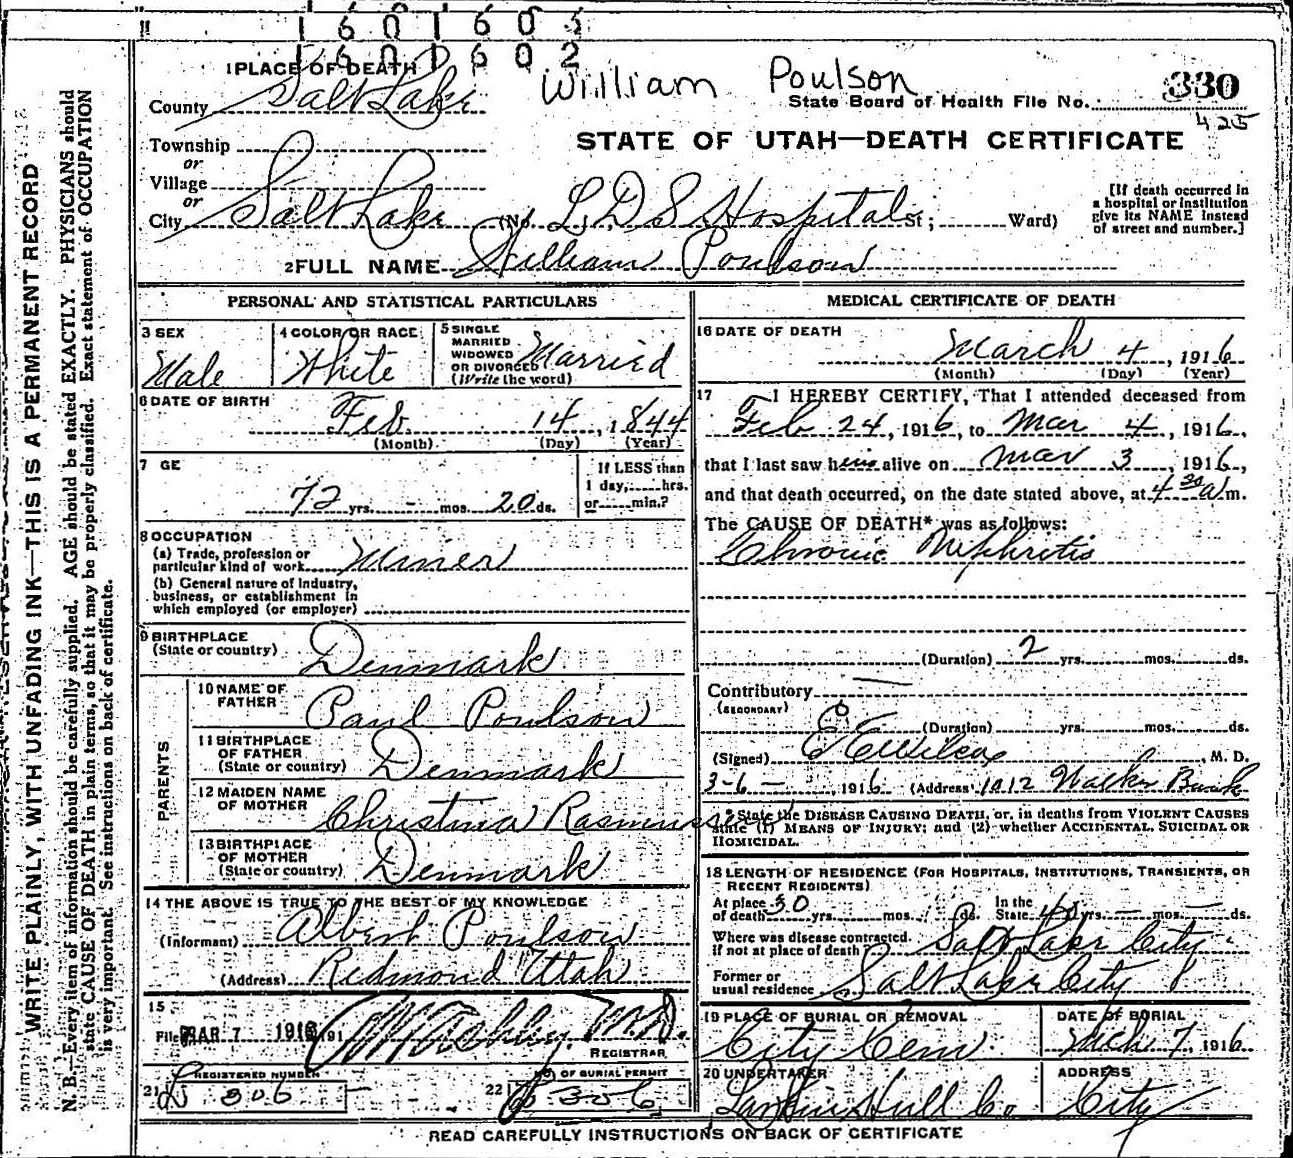 1 6 0 1 6 0 5
1 6 0 1 6 0 2
William Poulson
330
State Board of Health File No.
425
STATE OF UTAH—DEATH CERTIFICATE
1 PLACE OF DEATH
County Salt Lake
Township
or
Village
or
City Salt Lake (No. L. D. S. Hospital St; Ward)
[If death occurred in
a hospital or institution
give its NAME instead
of street and number.]
2 FULL NAME William Poulson
PERSONAL AND STATISTICAL PARTICULARS
3 SEX
Male
4 COLOR OR RACE
White
5 SINGLE
MARRIED
WIDOWED
OR DIVORCED
(Write the word)
Married
6 DATE OF BIRTH
Feb 14, 1844
(Month) (Day) (Year)
7 GE
72 yrs. - mos. 20 ds.
If LESS than
1 day, hrs.
or min.?
8 OCCUPATION
(a) Trade, profession or
particular kind of work Miner
(b) General nature of Industry,
business, or establishment in
which employed (or employer)
9 BIRTHPLACE
(State or country) Denmark
PARENTS
10 NAME OF
FATHER Paul Poulson
11 BIRTHPLACE
OF FATHER
(State or country) Denmark
12 MAIDEN NAME
OF MOTHER Christina Rasmuss
13 BIRTHPLACE
OF MOTHER
(State or country) Denmark
14 THE ABOVE IS TRUE TO THE BEST OF MY KNOWLEDGE
(Informant) Albert Poulson
(Address) Redmond Utah
15
File MAR 7 1916 191
M.D.
REGISTRAR
21 REGISTERED NUMBER
306
22 NO OF BURIAL PERMIT
306
MEDICAL CERTIFICATE OF DEATH
16 DATE OF DEATH
March 4, 1916
(Month) (Day) (Year)
17 I HEREBY CERTIFY, That I attended deceased from
Feb 24, 1916, to Mar 4, 1916,
that I last saw him alive on Mar 3, 1916,
and that death occurred, on the date stated above, at 4 30 a m.
The CAUSE OF DEATH* was as follows:
Chronic Nephritis
(Duration) 2 yrs. mos. ds.
Contributory
(SECONDARY)
(Duration) yrs. mos. ds.
(Signed) E E Wilcox, M. D.
3-6-, 1916 (Address) 1012 Walker Bank
* State the DISEASE CAUSING DEATH, or, in deaths from VIOLENT CAUSES
state (1) MEANS OF INJURY; and (2) whether ACCIDENTAL, SUICIDAL OR
HOMICIDAL.
18 LENGTH OF RESIDENCE (FOR HOSPITALS, INSTITUTIONS, TRANSIENTS, OR
RECENT RESIDENTS)
At place
of death 30 yrs. mos. ds. In the
State 40 yrs. - mos. - ds.
Where was disease contracted
if not at place of death? Salt Lake City
Former or
usual residence Salt Lake City
19 PLACE OF BURIAL OR REMOVAL
City Cem
DATE OF BURIAL
Mch 7, 1916
20 UNDERTAKER
Larkin Hull Co.
ADDRESS
City
READ CAREFULLY INSTRUCTIONS ON BACK OF CERTIFICATE
WRITE PLAINLY, WITH UNFADING INK—THIS IS A PERMANENT RECORD
N. B.—Every item of information should be carefully supplied. AGE should be stated EXACTLY. PHYSICIANS should
state CAUSE OF DEATH in plain terms, so that it may be properly classified. Exact statement of OCCUPATION
is very important. See instructions on back of certificate.